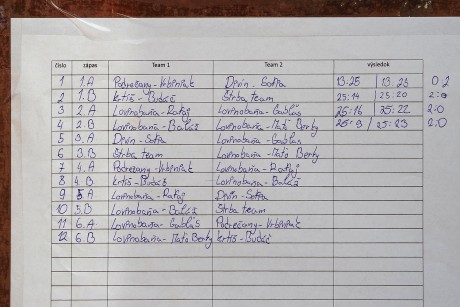 číslo zápas Team 1 Team 2 výsledok
1 1.A Podrečany-Vrbiniak Divín-Sokja 13:25 13:25 0:2
2 1.B Krtíš-Budáč Štrba team 25:14 25:20 2:0
3 2.A Lovinobaňa-Rataj Lovinobaňa-Gabľas 25:16 25:22 2:0
4 2.B Lovinobaňa-Baláž Lovinobaňa-Maťo Berky 25:9 25:23 2:0
5 3.A Divín-Sokja Lovinobaňa-Gabľas
6 3.B Štrba team Lovinobaňa-Maťo Berky
7 4.A Podrečany-Vrbiniak Lovinobaňa-Rataj
8 4.B Krtíš-Budáč Lovinobaňa-Baláž
9 5.A Lovinobaňa-Rataj Divín-Sokja
10 5.B Lovinobaňa-Baláž Štrba team
11 6.A Lovinobaňa-Gabľas Podrečany-Vrbiniak
12 6.B Lovinobaňa-Maťo Berky Krtíš-Budáč